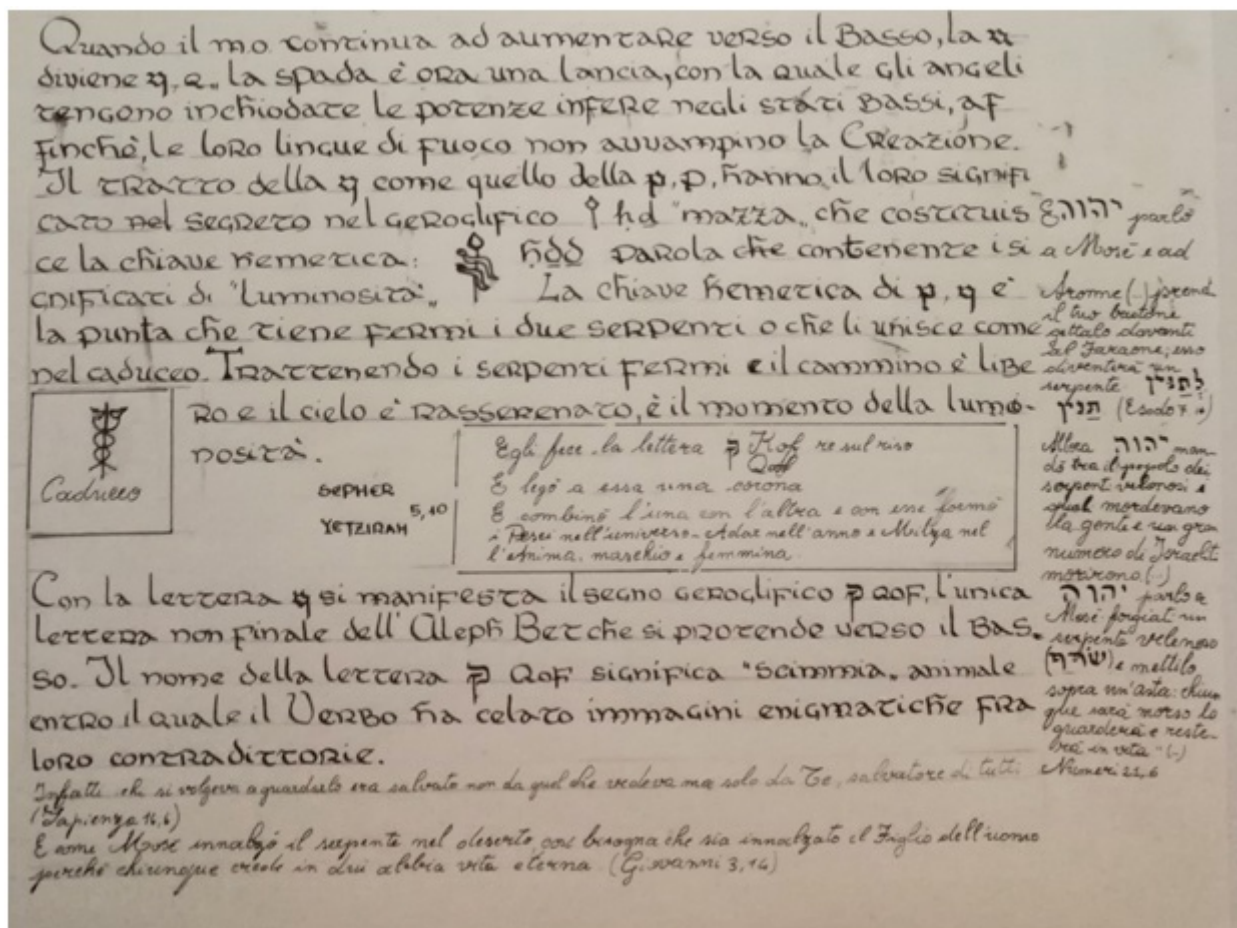 Quando il mo continua ad aumentare verso il Basso, la ꝗ
diviene ꝗ, q „ la spada è ora una lancia, con la quale gli angeli
tengono inchiodate le potenze infere negli stati Bassi, af
finchè, le loro lingue di fuoco non avvampino la Creazione.
Il tratto della ꝗ come quello della p, p, hanno il loro signifi
cato nel segreto nel geroglifico ḥd "mazza„ che costituis
ce la chiave hemetica: ḥḏḏ parola che contenente i si
gnificati di "luminosità„ La chiave hemetica di p, ꝗ è
la punta che tiene fermi i due serpenti o che li unisce come
nel caduceo. Trattenendo i serpenti fermi e il cammino è libe
ro e il cielo è rasserenato, è il momento della lumo-
nosità.
Caduceo
SEPHER
YETZIRAH 5,10
Egli fece la lettera ק Kof re sul riso
Qof
E legò a essa una corona
E combinò l'una con l'altra e con esse formò
i Pesci nell'universo - Adar nell'anno e Milza nel
l'Anima, maschio e femmina.
Con la lettera ꝗ si manifesta il segno geroglifico ק Qof, l'unica
lettera non finale dell'Aleph Bet che si protende verso il Bas-
so. Il nome della lettera ק Qof significa "scimmia„ animale
entro il quale il Verbo ha celato immagini enigmatiche fra
loro contradittorie.
Infatti chi si volgeva a guardarlo era salvato non da quel che vedeva ma solo da Te, salvatore di tutti
(Sapienza 16,6)
E come Mosè innalzò il serpente nel deserto così bisogna che sia innalzato il Figlio dell'uomo
perché chiunque crede in Lui abbia vita eterna. (Giovanni 3,14)
יהוה parlò
a Mosè e ad
Aronne (..) prend
il tuo bastone
gittalo davanti
al Faraone; esso
diventerà un
serpente לְתַנִּין
תַנִּין (Esodo 7
Allora יהוה man
dò tra il popolo dei
serpenti velenosi i
quali mordevano
la gente e un gran
numero di Israeliti
morirono (..)
יהוה parlò a
Mosè forgiati un
serpente velenoso
(שׂרף) e mettilo
sopra un'asta: chiun
que sarà morso lo
guarderà e reste-
rà in vita" (..)
Numeri 21,6